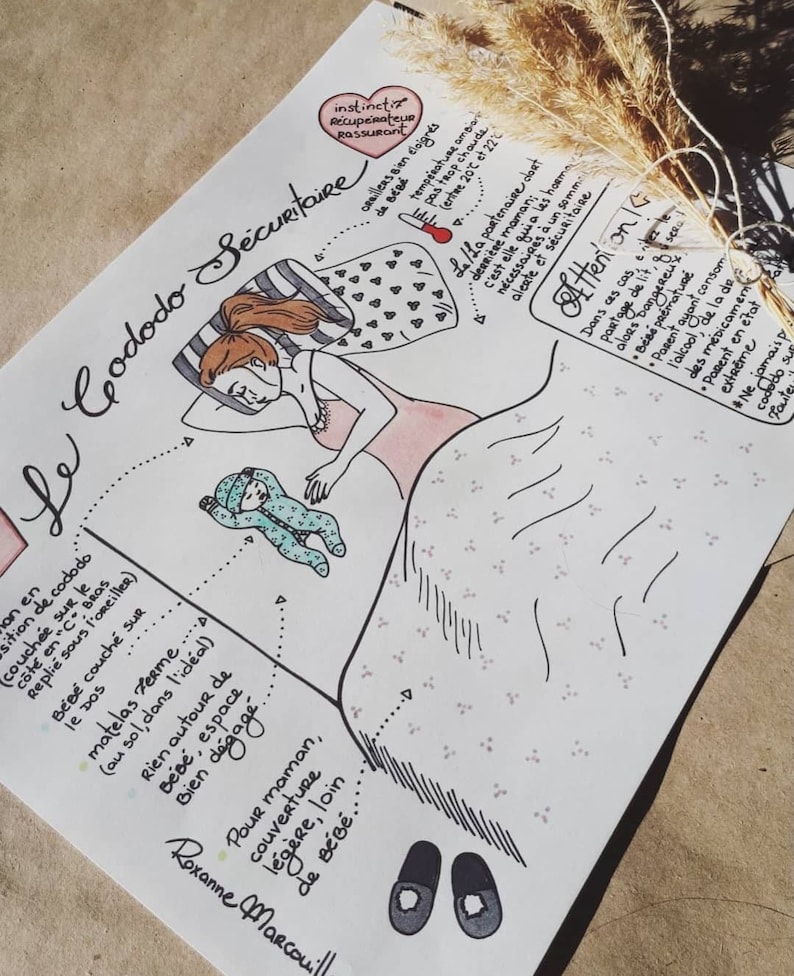 instinctif
Récupérateur
Rassurant
Le Cododo Sécuritaire
oreillers bien éloignés
de Bébé
température
pas trop chaude
(entre 20°C et 22°C
Le/La partenaire dort
derrière maman;
c'est elle qui a les
nécessaires à un sommeil
alerte et sécuritaire
Attention!
Dans ces cas,
partage de lit,
alors Dangereux
• Bébé prématuré
• Parent ayant
l'alcool, de la
des médicament
• Parent en état
extrême
*Ne jamais
cododo sur
en
position de cododo
(couchée sur le
côté en "C" Bras
Replié sous l'oreiller)
Bébé couché sur
le dos
matelas ferme
(au sol, dans l'idéal)
Rien autour de
Bébé, espace
Bien dégagé
Pour maman,
couverture
légère, loin
de Bébé
Roxanne